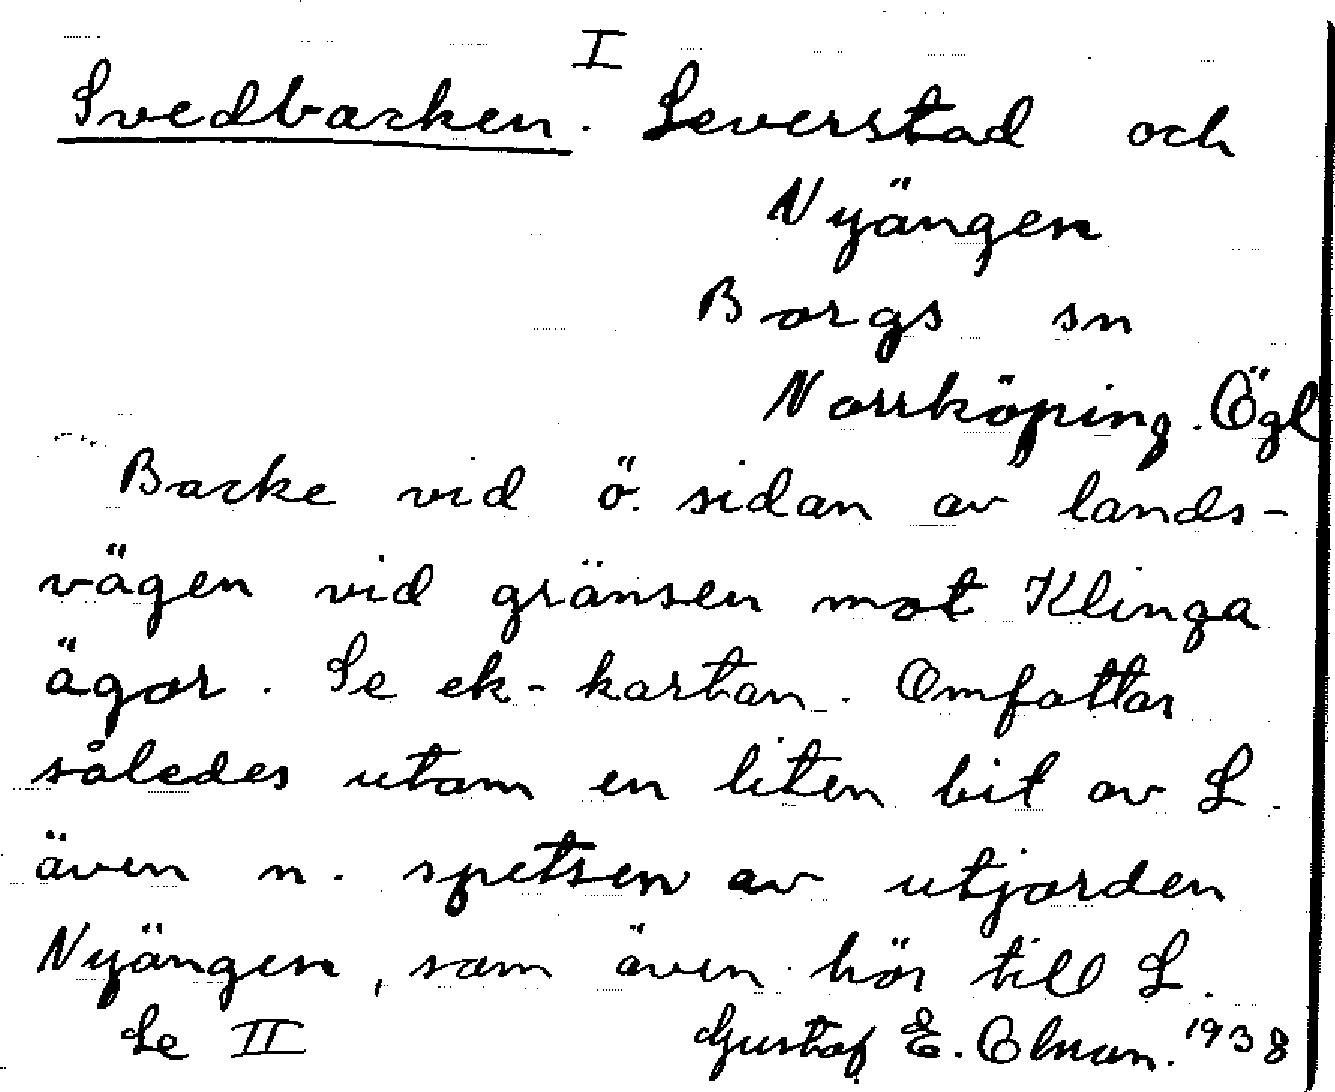 I
Svedbacken. Leverstad och
Nyängen
Borgs sn
Norrköping. Ögl
Backe vid ö. sidan av lands-
vägen vid gränsen mot Klinga
ägor. Se ek-kartan. Omfattar
således utom en liten bit av L.
även n. spetsen av utjorden
Nyängen, som även hör till L.
Se II Gustaf E. Olman. 1938